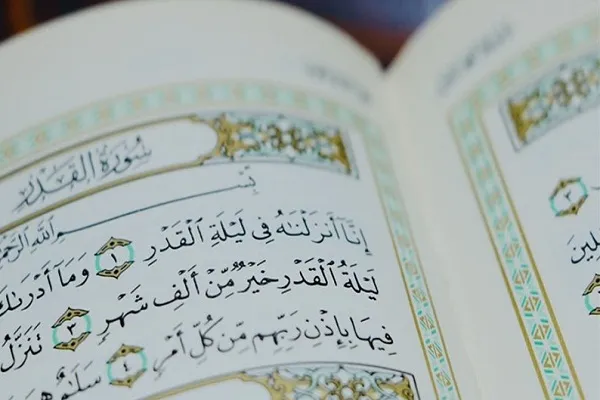 سُورَةُ القَدْرِ
بِسْمِ ٱللَّهِ ٱلرَّحْمَٰ
إِنَّآ أَنزَلْنَٰهُ فِى لَيْلَةِ ٱلْقَدْرِ ١ وَمَآ أَدْرَىٰكَ
لَيْلَةُ ٱلْقَدْرِ خَيْرٌ مِّنْ أَلْفِ شَهْرٍ ٣ تَنَزَّلُ
فِيهَا بِإِذْنِ رَبِّهِم مِّن كُلِّ أَمْرٍ ٤ سَلَٰمٌ هِىَ
٢